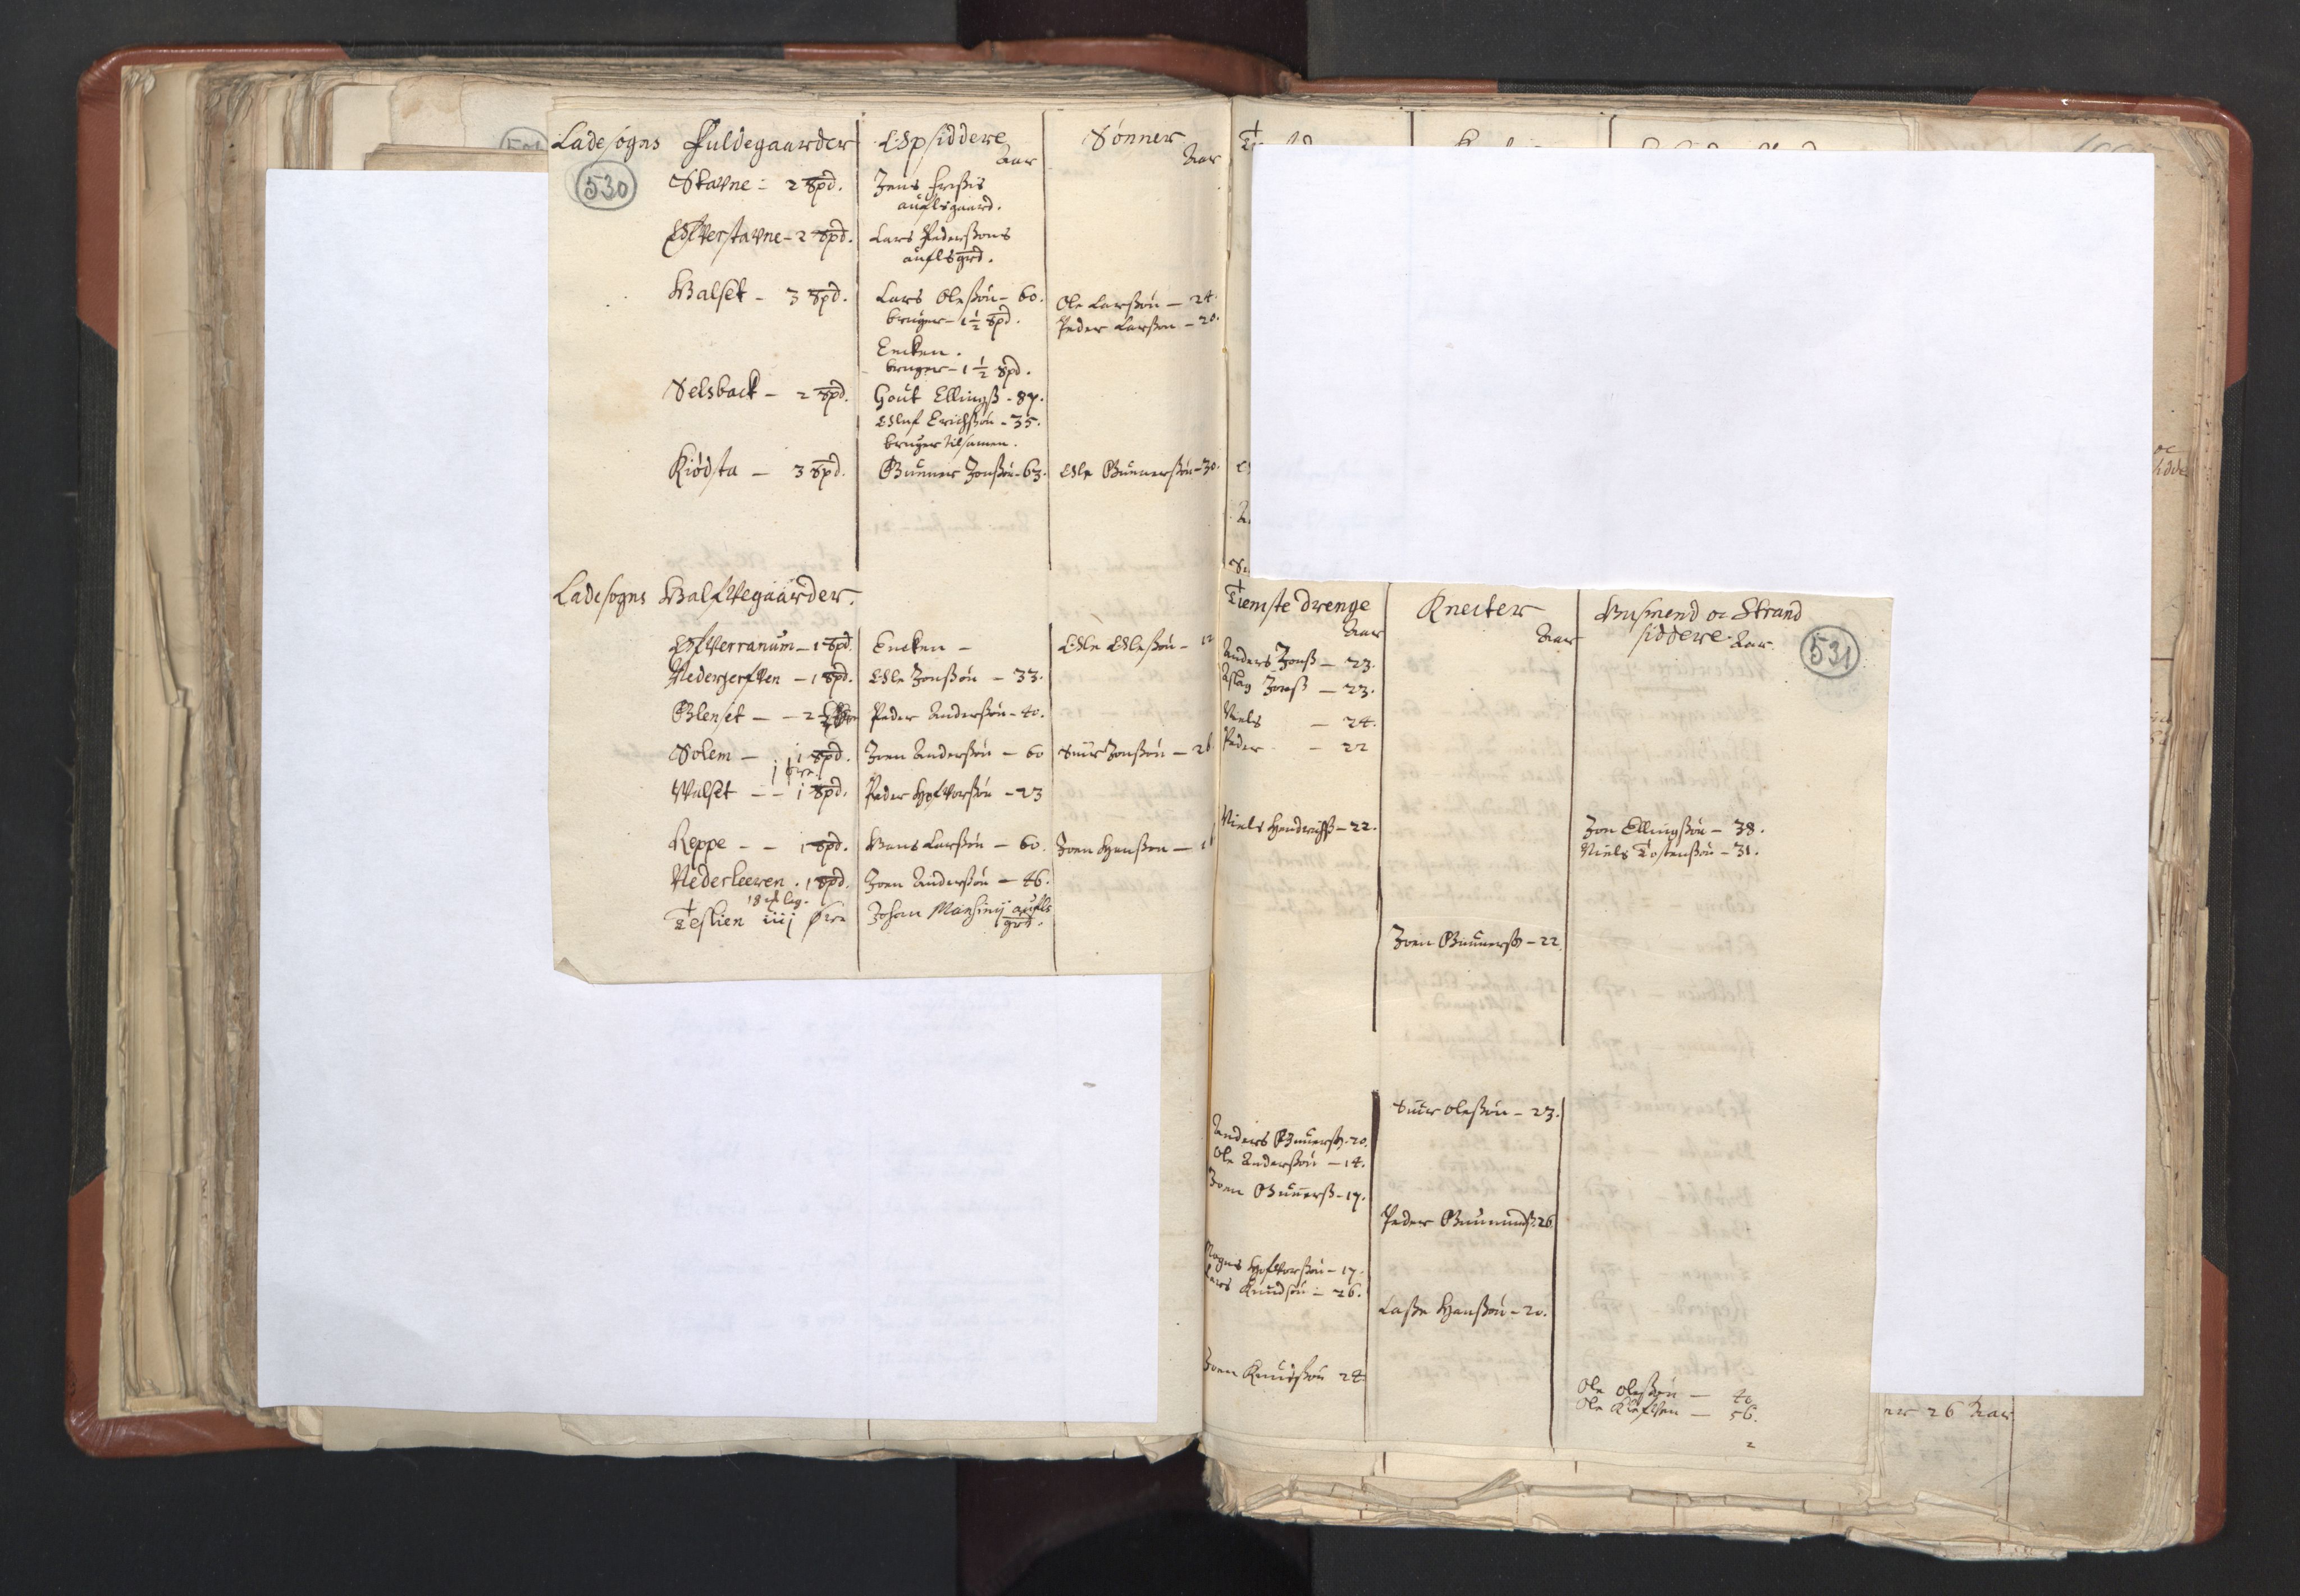 Ladesogns Fuldegaarder
Opsiddere
Aar
Sønner
Aar
530
Skavne - 2 spd.
Jens
auflsgaard.
Offverstavne - 2 spd.
Lars Pederssons
auflsgrd.
Halset - 3 spd.
Lars Olessøn - 60.
bruger - 1 1/2 spd.
Ole Larssøn - 24.
Peder Larsson - 20.
Encken.
bruger - 1 1/2 spd.
Selsback - 2 spd.
Gout Ellingß - 87.
Oluf Erichssøn - 35.
bruger tilsamen.
Kiødsta - 3 spd.
Gunner Jonssøn - 63.
Ole Gunnerssøn - 30.
Ladesogns Halffvegaarder.
Offverranum - 1 spd.
Encken -
Ole Olessøn - 12
Nedergerffven - 1 spd.
Ole Jonssøn - 33.
Blenset - - 2
Peder Anderssøn - 40.
Solem - 1 spd.
Joen Anderssøn - 60
Siur Jonssøn - 26
1 øre.
Valset - - 1 spd.
Peder Halvorssøn - 23
Reppe - - 1 spd.
Hans Larssøn - 60.
Joen Hanssen -
Nederleeren. 1 spd.
Joen Anderssøn - 46.
18 mk leg.
Teslien iiij øre
Johan aufls
grd.
Tienste drenge
Aar
Kneckter
Aar
Husmend oc Strand
siddere. Aar.
531
Anders Jonß - 23.
Aslag Jonß - 23.
Niels - 24.
Peder - 22
Niels Hendrichß - 22.
Jon Ellingssøn - 38.
Niels Tostenssøn - 31.
Joen Gunnerß - 22.
Siur Olessøn - 23.
Anders Gunnerß - 20.
Ole Anderssøn - 14.
Joen Gunnerß - 17.
Peder Gunnundß. 26
Mogens Halvorssøn - 17.
Lars Knudsøn - 26.
Lasse Hanssøn - 20.
Joen Knudssøn 24
Ole Olessøn - 40
Ole Kleffven - 56.
2
26 Aar